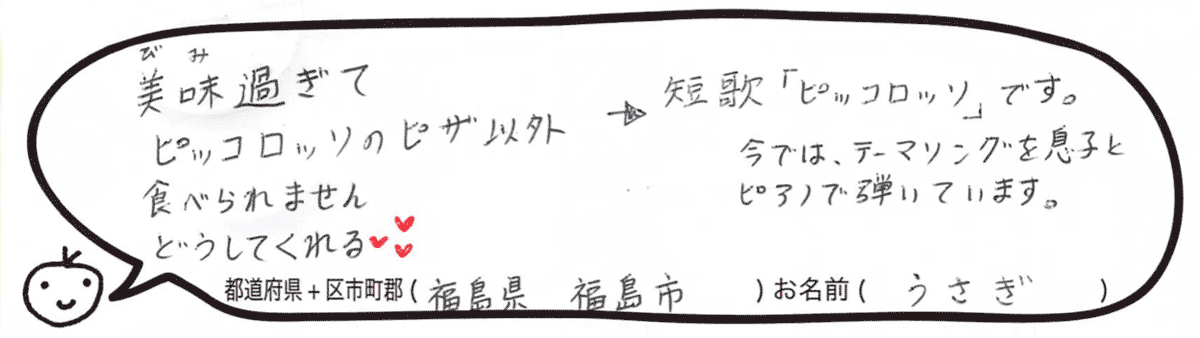 びみ
美味過ぎて
ピッコロッソのピザ以外
食べられません
どうしてくれる
→ 短歌「ピッコロッソ」です。
今では、テーマソングを息子と
ピアノで弾いています。
都道府県+区市町郡(福島県 福島市)お名前(うさぎ)